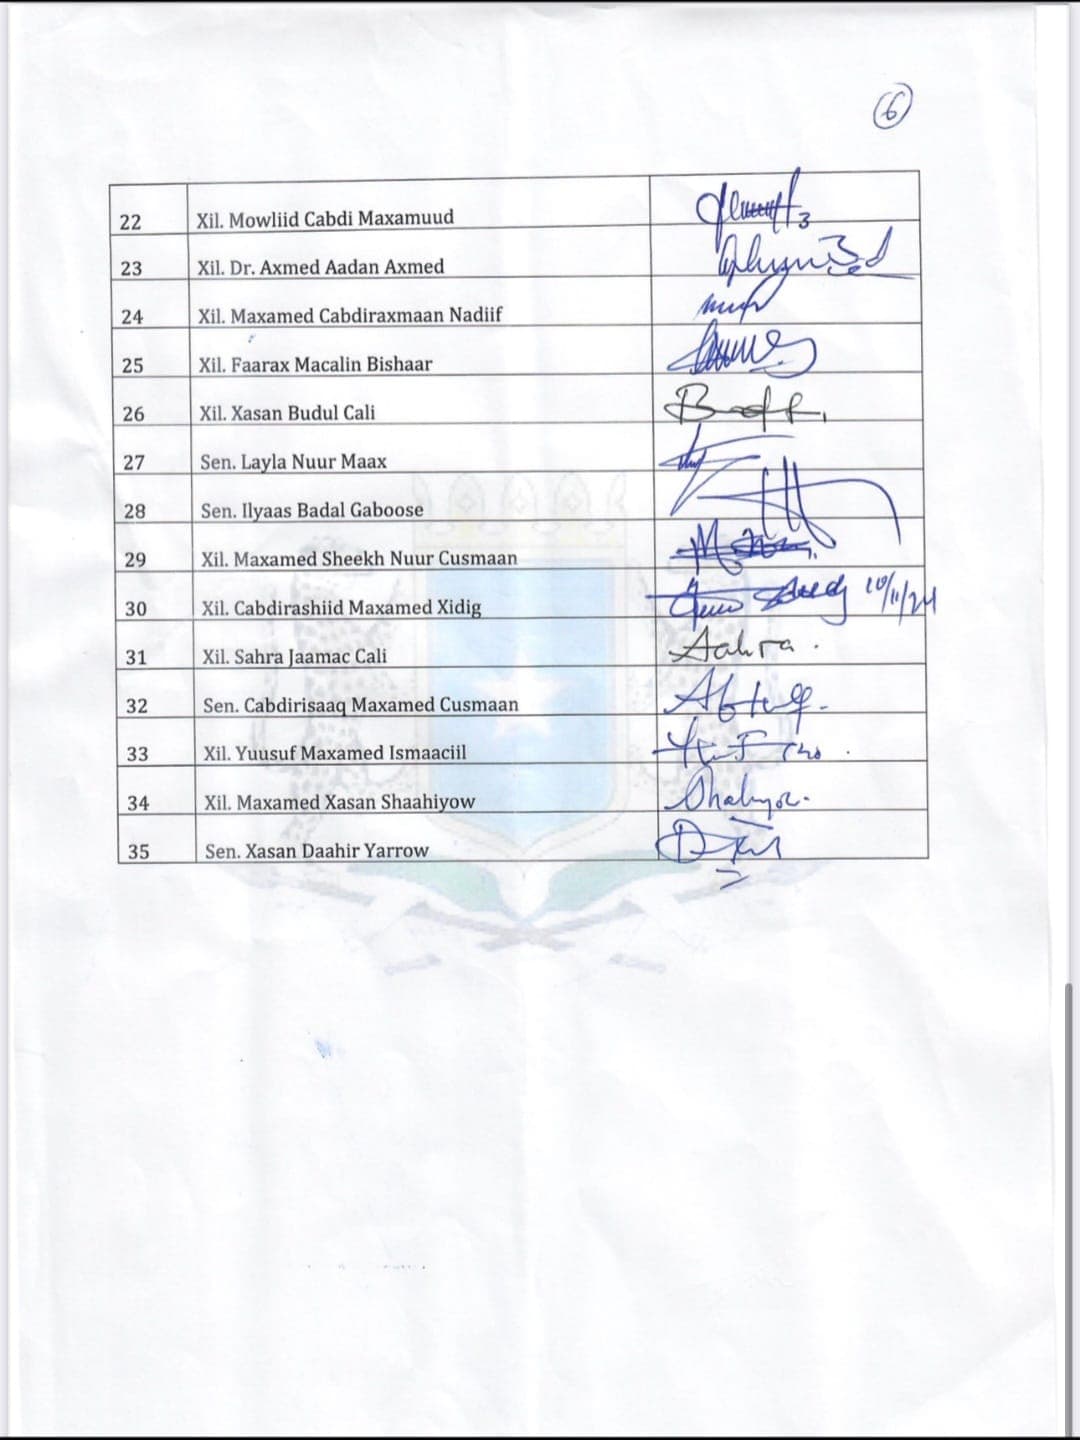 6
22 Xil. Mowliid Cabdi Maxamuud
23 Xil. Dr. Axmed Aadan Axmed
24 Xil. Maxamed Cabdiraxmaan Nadiif
25 Xil. Faarax Macalin Bishaar
26 Xil. Xasan Budul Cali
27 Sen. Layla Nuur Maax
28 Sen. Ilyaas Badal Gaboose
29 Xil. Maxamed Sheekh Nuur Cusmaan
30 Xil. Cabdirashiid Maxamed Xidig 10/11/24
31 Xil. Sahra Jaamac Cali
32 Sen. Cabdirisaaq Maxamed Cusmaan
33 Xil. Yuusuf Maxamed Ismaaciil
34 Xil. Maxamed Xasan Shaahiyow
35 Sen. Xasan Daahir Yarrow